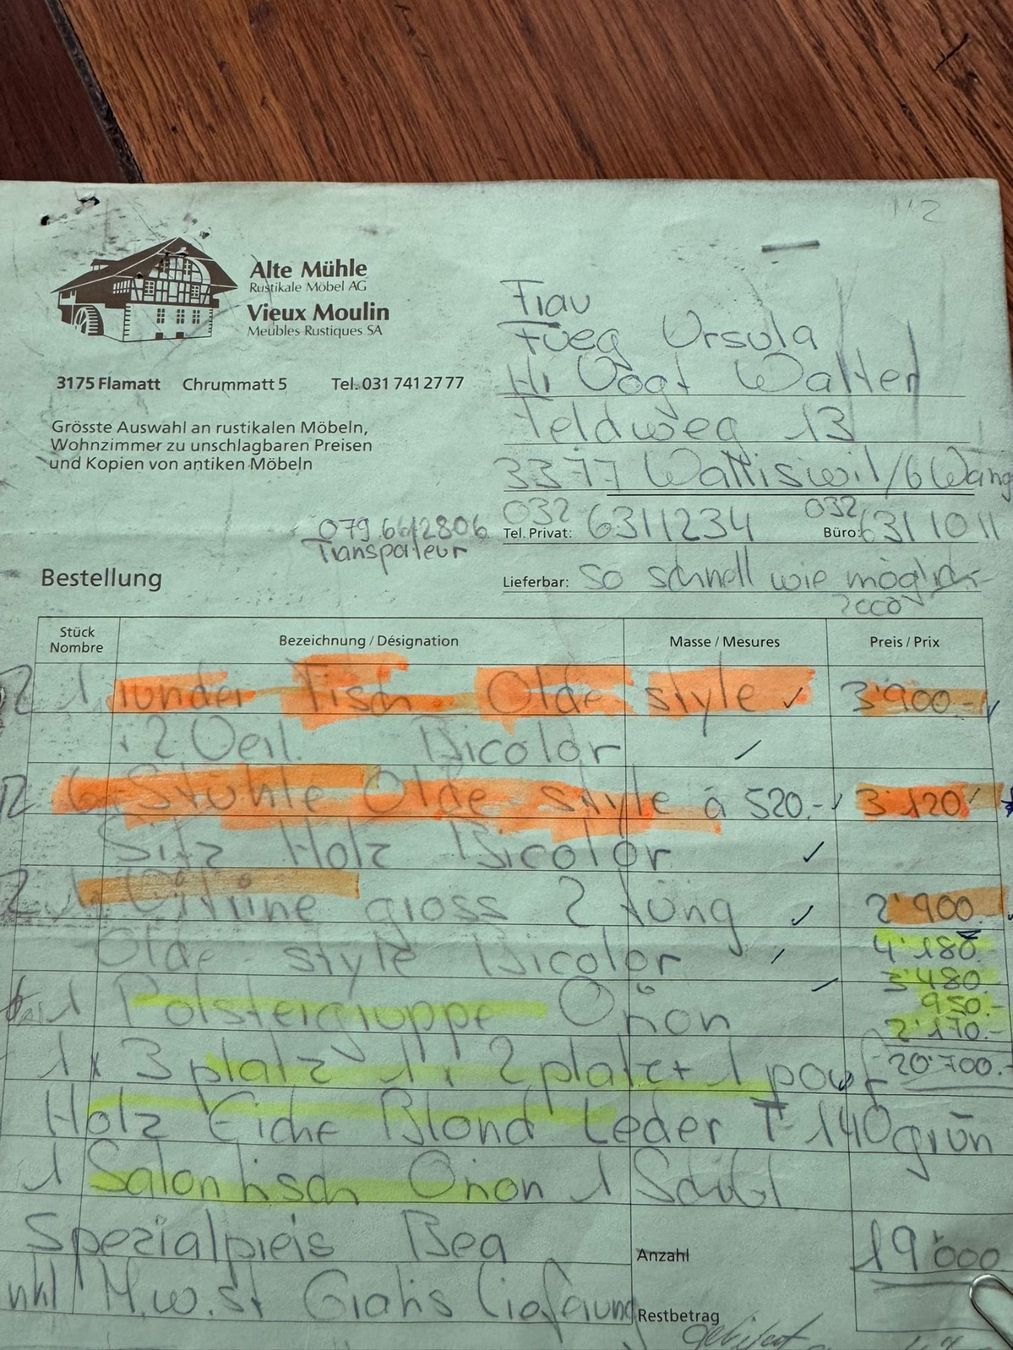 Alte Mühle
Rustikale Möbel AG
Vieux Moulin
Meubles Rustiques SA
3175 Flamatt Chrummatt 5 Tel. 031 741 27 77
Grösste Auswahl an rustikalen Möbeln,
Wohnzimmer zu unschlagbaren Preisen
und Kopien von antiken Möbeln
Frau
Füeg Ursula
Hr Vogt Walter
Feldweg 13
3377 Walliswil/b Wang
Tel. Privat: 032 6311234 Büro: 032 6311011
079 6612806
Transporteur
Lieferbar: So schnell wie möglich
Bestellung
Stück Nombre Bezeichnung / Désignation Masse / Mesures Preis / Prix
1 runder Tisch Olde style 3'900.-
+ 2 Oeil. Bicolor
6 Stühle Olde style à 520.- 3'120
Sitz Holz Bicolor
1 Vitrine gross 2 türig 2'900.
Olde style Bicolor 4'180.-
3'480
1 Polstergruppe Orion 950.-
2'170.-
1x 3 platz 1x 2 platz + 1 pouf 20'700.-
Holz Eiche Blond Leder T-140 grün
1 Salontisch Orion 1 Schubl.
Spezialpreis Bea Anzahl 19'000
Inkl M.w.st Gratis Lieferung Restbetrag